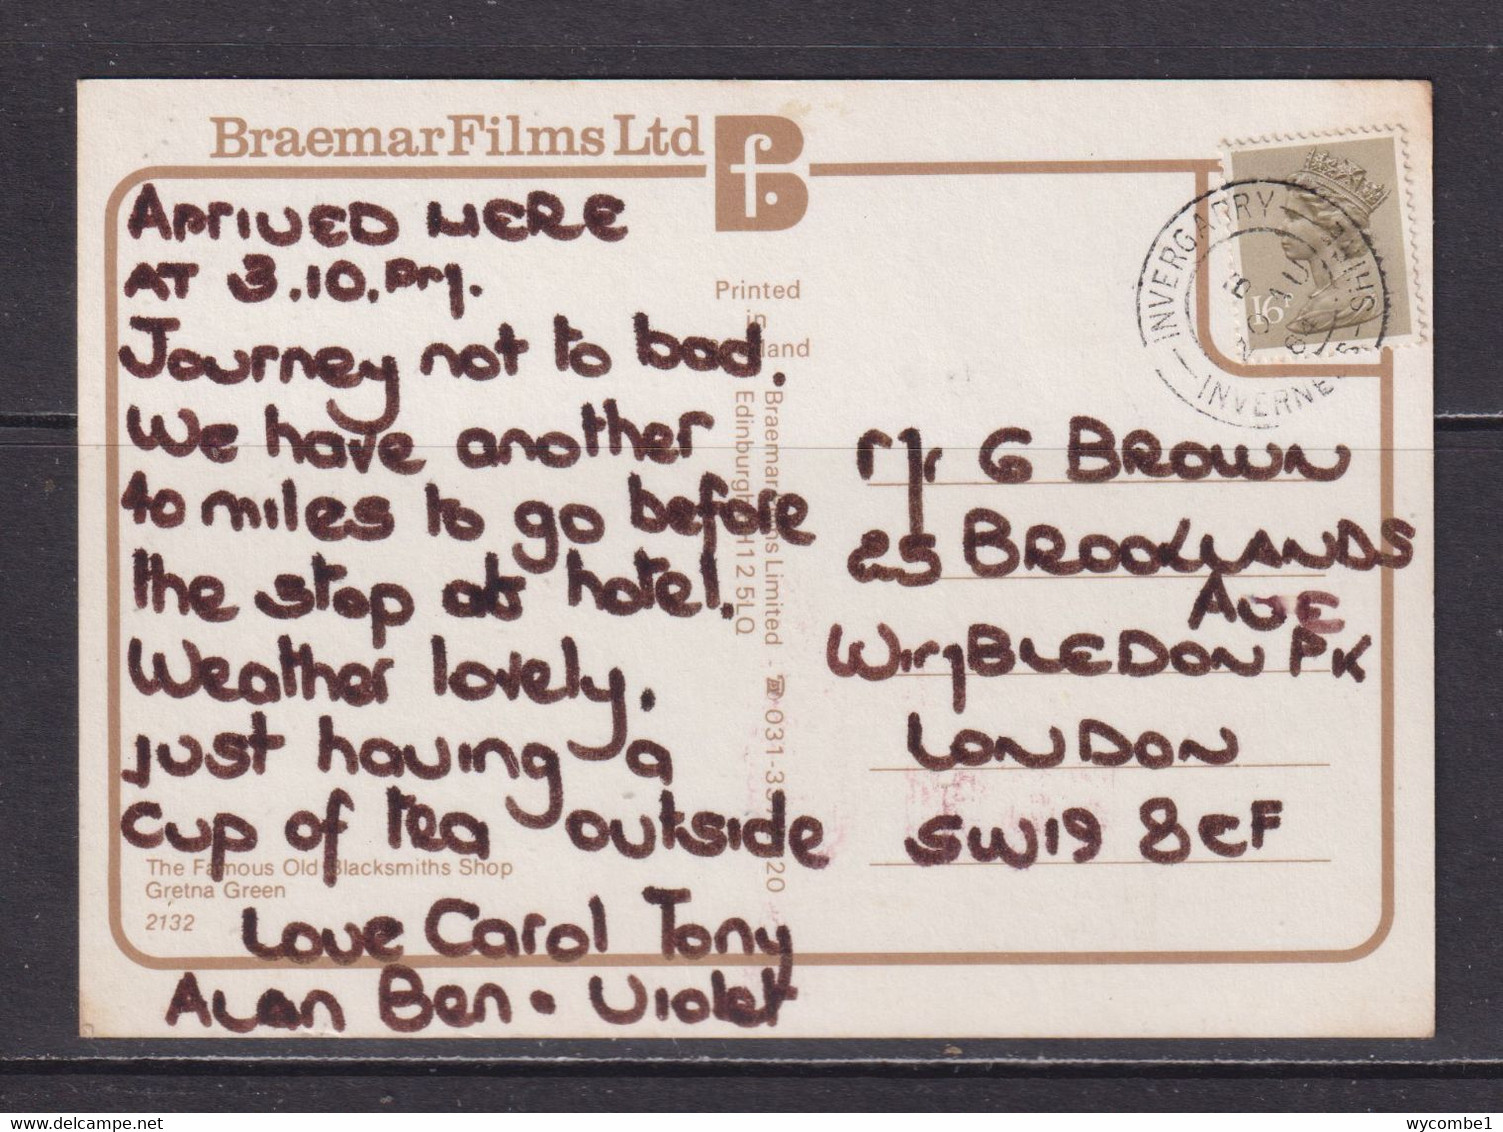 Braemar Films Ltd
Bf.
ARRIVED HERE
AT 3.10.Pm.
Journey not to bad.
We have another
40 miles to go before
the stop at hotel.
Weather lovely.
just having a
cup of tea outside
Love Carol Tony
Alan Ben. Violet
The Famous Old Blacksmiths Shop
Gretna Green
2132
Printed
in
land
Braemar Films Limited
Edinburgh H12 5LQ
☎ 031-33 20
16P
INVERGARRY
INVERNESS-SHIRE
AU
Mr G BROWN
25 BROOKLANDS
AVE
WimBLEDON PK
LONDON
SW19 8EF
wycombe1